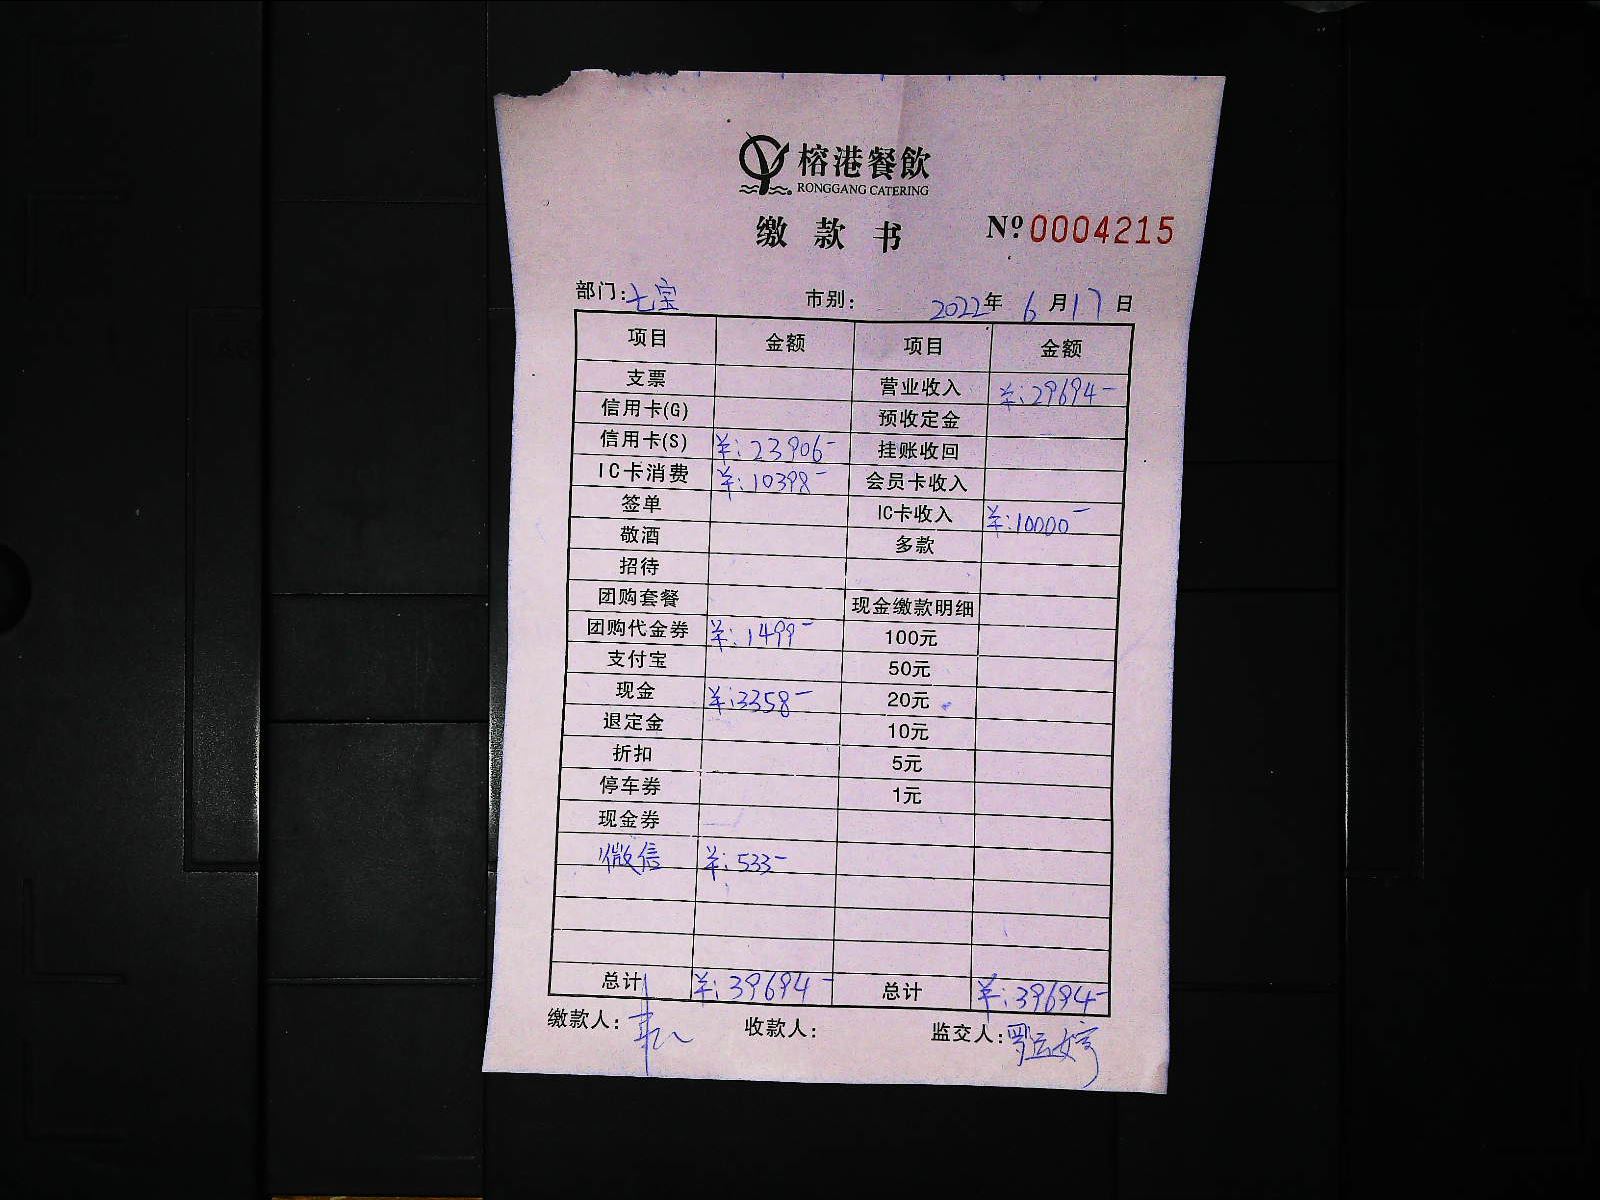 榕港餐飲
RONGGANG CATERING
缴款书 Nº 0004215
部门：七宝 市别： 2022年 6月17日
项目 金额 项目 金额
支票 营业收入 ¥：29694-
信用卡(G) 预收定金
信用卡(S) ¥：23906- 挂账收回
IC卡消费 ¥：10398- 会员卡收入
签单 IC卡收入 ¥：10000-
敬酒 多款
招待
团购套餐 现金缴款明细
团购代金券 ¥：1499- 100元
支付宝 50元
现金 ¥：3358- 20元
退定金 10元
折扣 5元
停车券 1元
现金券
微信 ¥：533-
总计 ¥：39694- 总计 ¥：39694-
缴款人： 收款人： 监交人：